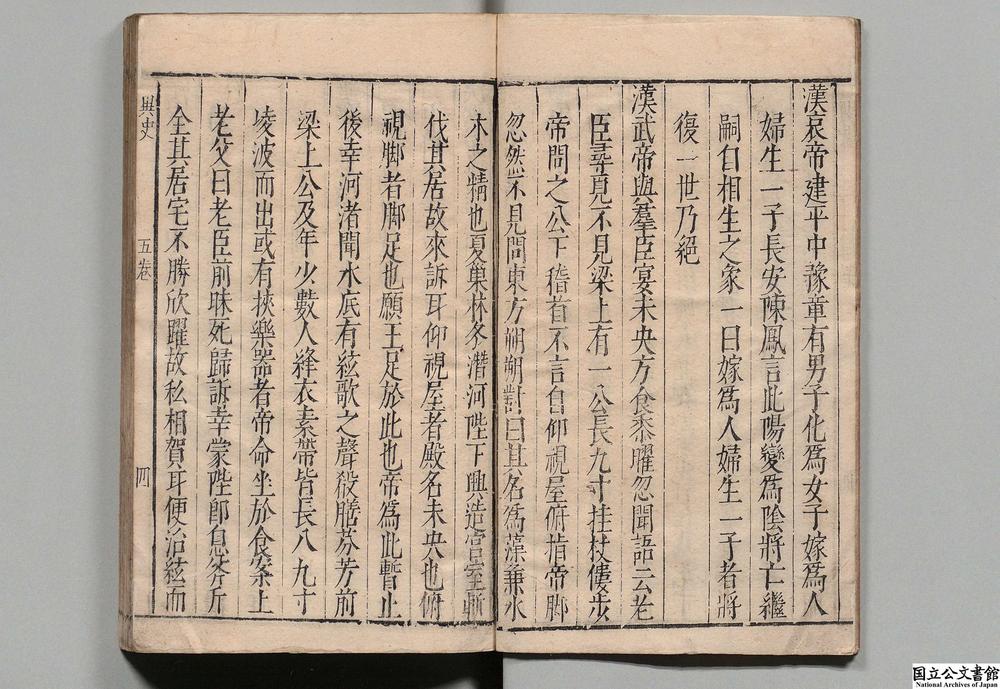 漢哀帝建平中豫章有男子化爲女子嫁爲人
婦生一子長安陳鳳言此陽變爲陰將亡繼
嗣自相生之象一曰嫁爲人婦生一子者將
復一世乃絕
漢武帝與羣臣宴未央方食黍臛忽聞語云老
臣尋覓不見梁上有一公長九寸拄杖僂步
帝問之公下稽首不言因仰視屋俯指帝脚
忽然不見問東方朔朔對曰其名爲藻兼水
木之精也夏巢林冬潛河陛下興造宮室斬
伐其居故來訴耳仰視屋者殿名未央也俯
視脚者脚足也願王足於此也帝爲此暫止
後幸河渚聞水底有絃歌之聲殽膳芬芳前
梁上公及年少數人絳衣素帶皆長八九寸
凌波而出或有挾樂器者帝命坐於食案上
老父曰老臣前昧死歸訴幸蒙陛卽息斧斤
全其居宅不勝欣躍故私相賀耳便治絃而
異史
五卷
四
国立公文書館
National Archives of Japan